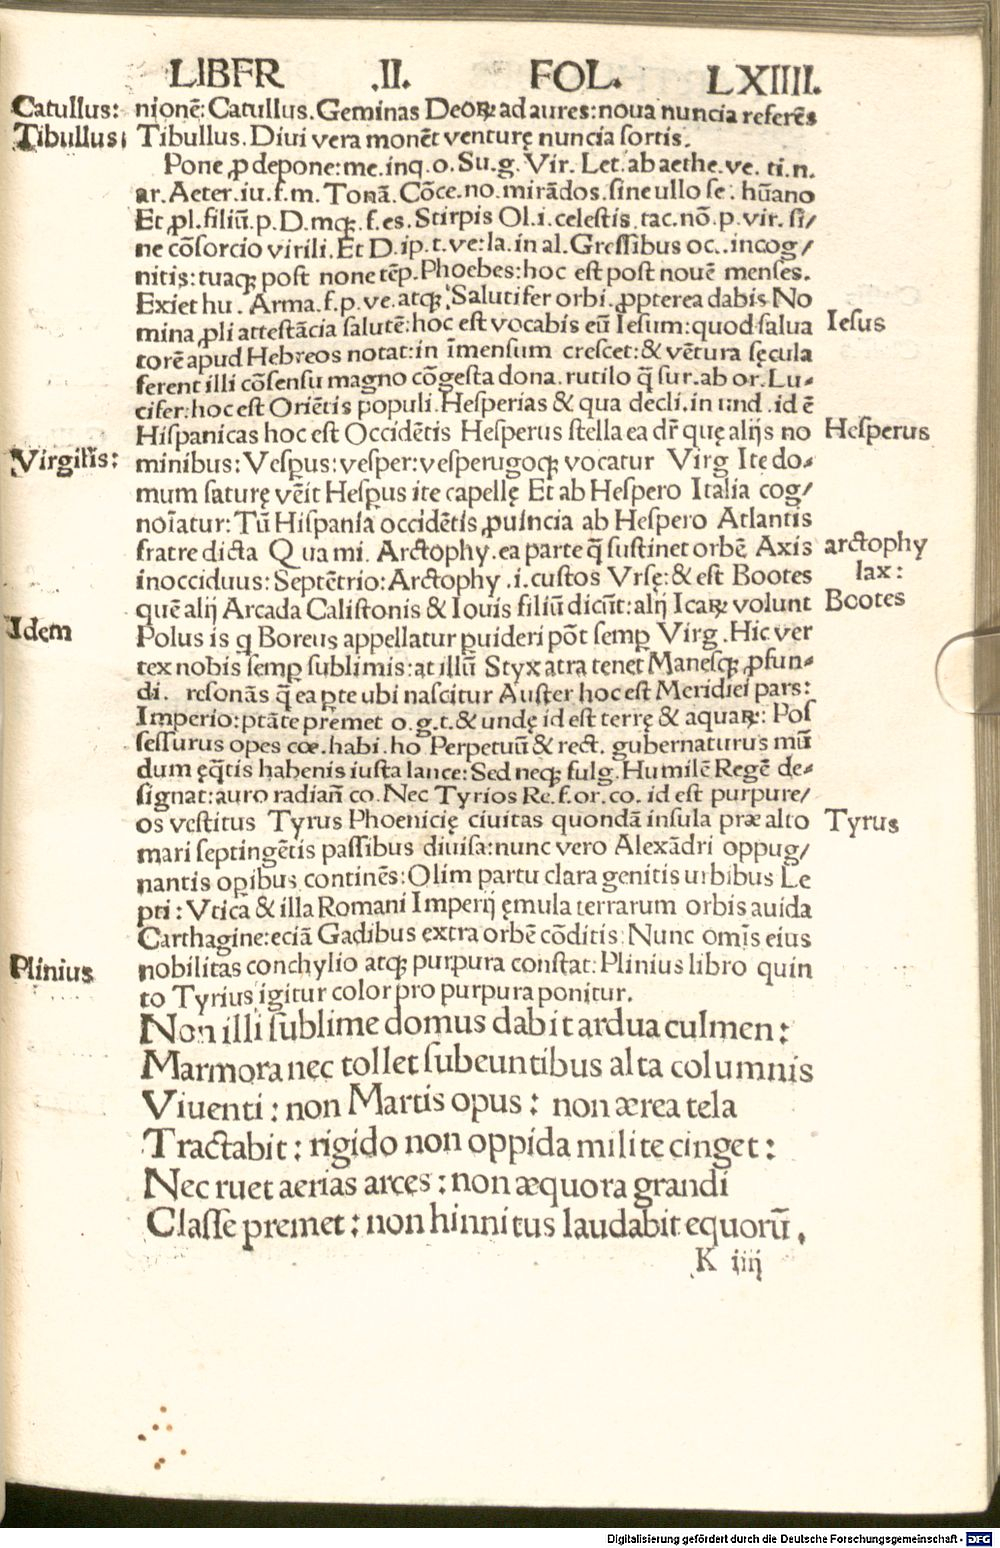 LIBER .II. FOL. LXIIII.
Catullus: nionē: Catullus. Geminas Deoꝝ ad aures: noua nuncia referēs
Tibullus: Tibullus. Diui vera monēt venturę nuncia sortis.
Pone ꝓ depone: me. inq. o. Su. g. Vir. Let. ab aethe. ve. ti. n.
ar. Aeter. iu. f. m. Tonā. Cōce. no. mirādos. sine ullo se. hūano
Et ꝓl. filiū. p. D. mqꝫ. f. es. Stirpis Ol. i. celestis. tac. nō. p. vir. si/
ne cōsorcio virili. Et D. ip. t. ve: la. in al. Gressibus oc.. incog/
nitis: tuaqꝫ post none tēp. Phoebes: hoc est post nouē menses.
Exiet hu. Arma. f. p. ve. atqꝫ. Salutifer orbi. ꝓpterea dabis No
mina ꝓli attestācia salutē: hoc est vocabis eū Iesum: quod salua Iesus
torē apud Hebreos notat: in īmensum crescet: & vētura sęcula
ferent illi cōsensu magno cōgesta dona. rutilo q̄ sur. ab or. Lu-
cifer: hoc est Oriētis populi. Hesperias & qua decli. in und. id ē
Hispanicas hoc est Occidētis Hesperus stella ea dr̄ quę alijs no Hesperus
Virgilīs: minibus: Vesꝑus: vesper: vesperugoqꝫ vocatur Virg Ite do-
mum saturę vēit Hesꝑus ite capellę Et ab Hespero Italia cog/
noīatur: Tū Hispania occidētis ꝓuincia ab Hespero Atlantis
fratre dicta Qua mi. Arctophy. ea parte q̄ sustinet orbē Axis arctophy
inocciduus: Septētrio: Arctophy. i. custos Vrsę: & est Bootes lax:
quē alij Arcada Calistonis & Iouis filiū dicūt: alij Icaꝝ volunt Bootes
Idem Polus is q Boreus appellatur ꝑuideri pōt semꝑ Virg. Hic ver
tex nobis semꝑ sublimis: at illū Styx atra tenet Manesqꝫ ꝓfun-
di. resonās q̄ ea ꝑte ubi nascitur Auster hoc est Meridiei pars:
Imperio: ptāte premet o. g. t. & undę id est terrę & aquaꝝ: Pos
sessurus opes cœ. habi. ho Perpetuū & rect. gubernaturus mū
dum ęq̄tis habenis iusta lance: Sed neqꝫ fulg. Humilē Regē de-
signat: auro radiañ co. Nec Tyrios Re. f. or. co. id est purpure/
os vestitus Tyrus Phoenicię ciuitas quondā insula præ alto Tyrus
mari septingētis passibus diuisa: nunc vero Alexādri oppug/
nantis oꝑibus continēs: Olim partu clara genitis urbibus Le
pti: Vtica & illa Romani Imperij ęmula terrarum orbis auida
Carthagine: eciā Gadibus extra orbē cōditis: Nunc omīs eius
Plinius nobilitas conchylio atqꝫ purpura constat: Plinius libro quin
to Tyrius igitur color pro purpura ponitur.
Non illi sublime domus dabit ardua culmen:
Marmora nec tollet subeuntibus alta columnis
Viuenti: non Martis opus: non ærea tela
Tractabit: rigido non oppida milite cinget:
Nec ruet aerias arces: non æquora grandi
Classe premet: non hinnitus laudabit equorū.
K iiij
Digitalisierung gefördert durch die Deutsche Forschungsgemeinschaft - DFG